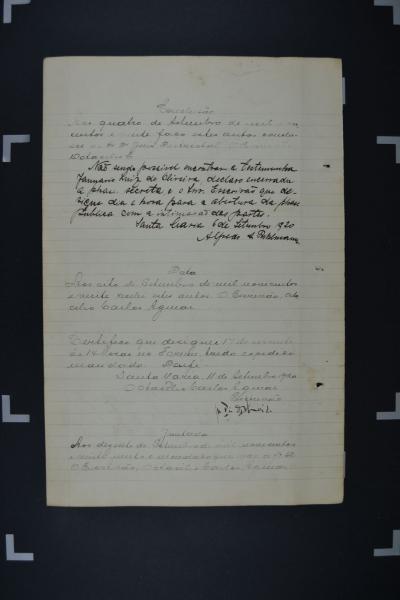 Conclusão
Aos quatro de Setembro de mil nove-
centos e vinte faço estes autos conclu-
sos ao Dr Juiz
Não sendo possivel encontrar a testemunha
Januario Ruiz de Oliveira declaro encerrada
a phase secreta e o Snr. Escrivão que de-
signe dia e hora para a abertura da phase
publica com a intimação das partes.
Santa Maria 6 de Setembro 920
Alfredo
Data
Aos oito de Setembro de mil novecentos
e vinte recebi estes autos. O Escrivão, Ota-
cilio Carlos Aguiar
Certifico que designei 17 do corrente
ás 14 horas no Forum, tendo expedido
mandado. Dou fé
Santa Maria, 11 de Setembro 920
Otacilio Carlos Aguiar
Escrivão
Juntada
Aos dezoito de Setembro de mil novecentos
e vinte junto o mandado que
O Escrivão, Otacilio Carlos Aguiar